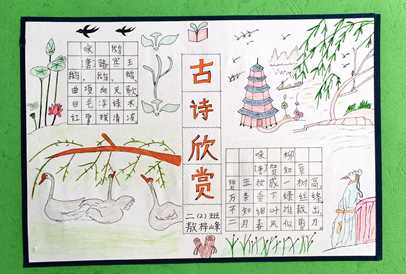 咏鹅
(唐)骆宾王
鹅,鹅,鹅,
曲项向天歌
白毛浮绿水
红掌拨清波
古诗欣赏
二(2)班
咏柳
(唐)贺知章
碧玉妆成一树高,
万条垂下绿丝绦
不知细叶谁裁出,
二月春风似剪刀